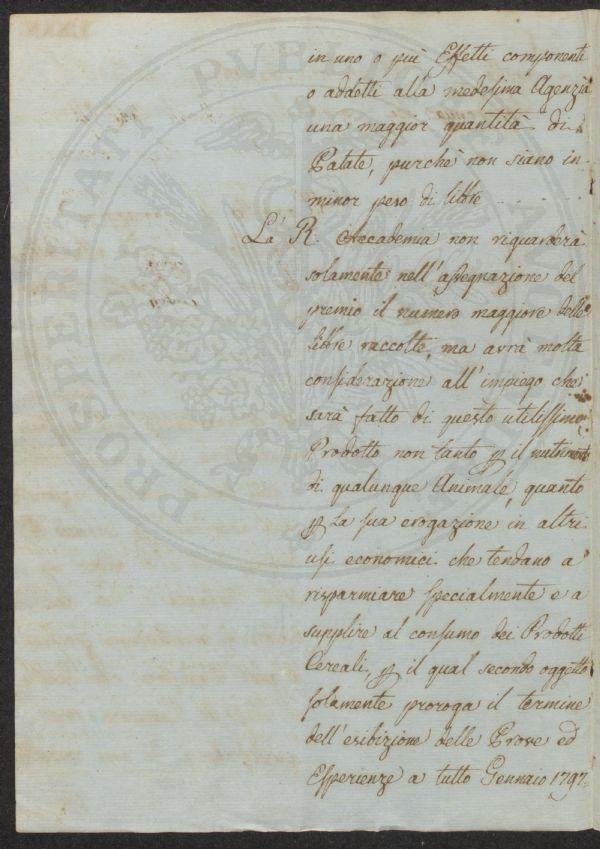 in uno o più Effetti componenti
o addetti alla medesima Agenzia
una maggior quantità di
Patate, purchè non siano in
minor peso di libbre
La R. Accademia non riguarderà
solamente nell'assegnazione del
premio il numero maggiore delle
libbre raccolte, ma avrà molta
considerazione all'impiego che
sarà fatto di questo utilissimo
Prodotto non tanto p il nutrimento
di qualunque Animale, quanto
p la sua erogazione in altri
usi economici che tendano a
risparmiare specialmente e a
supplire al consumo dei Prodotti
Cereali, p il qual secondo oggetto
solamente proroga il termine
dell'esibizione delle Prove ed
Esperienze a tutto Gennaio 1797.
PROSPERITATI PUBLICAE